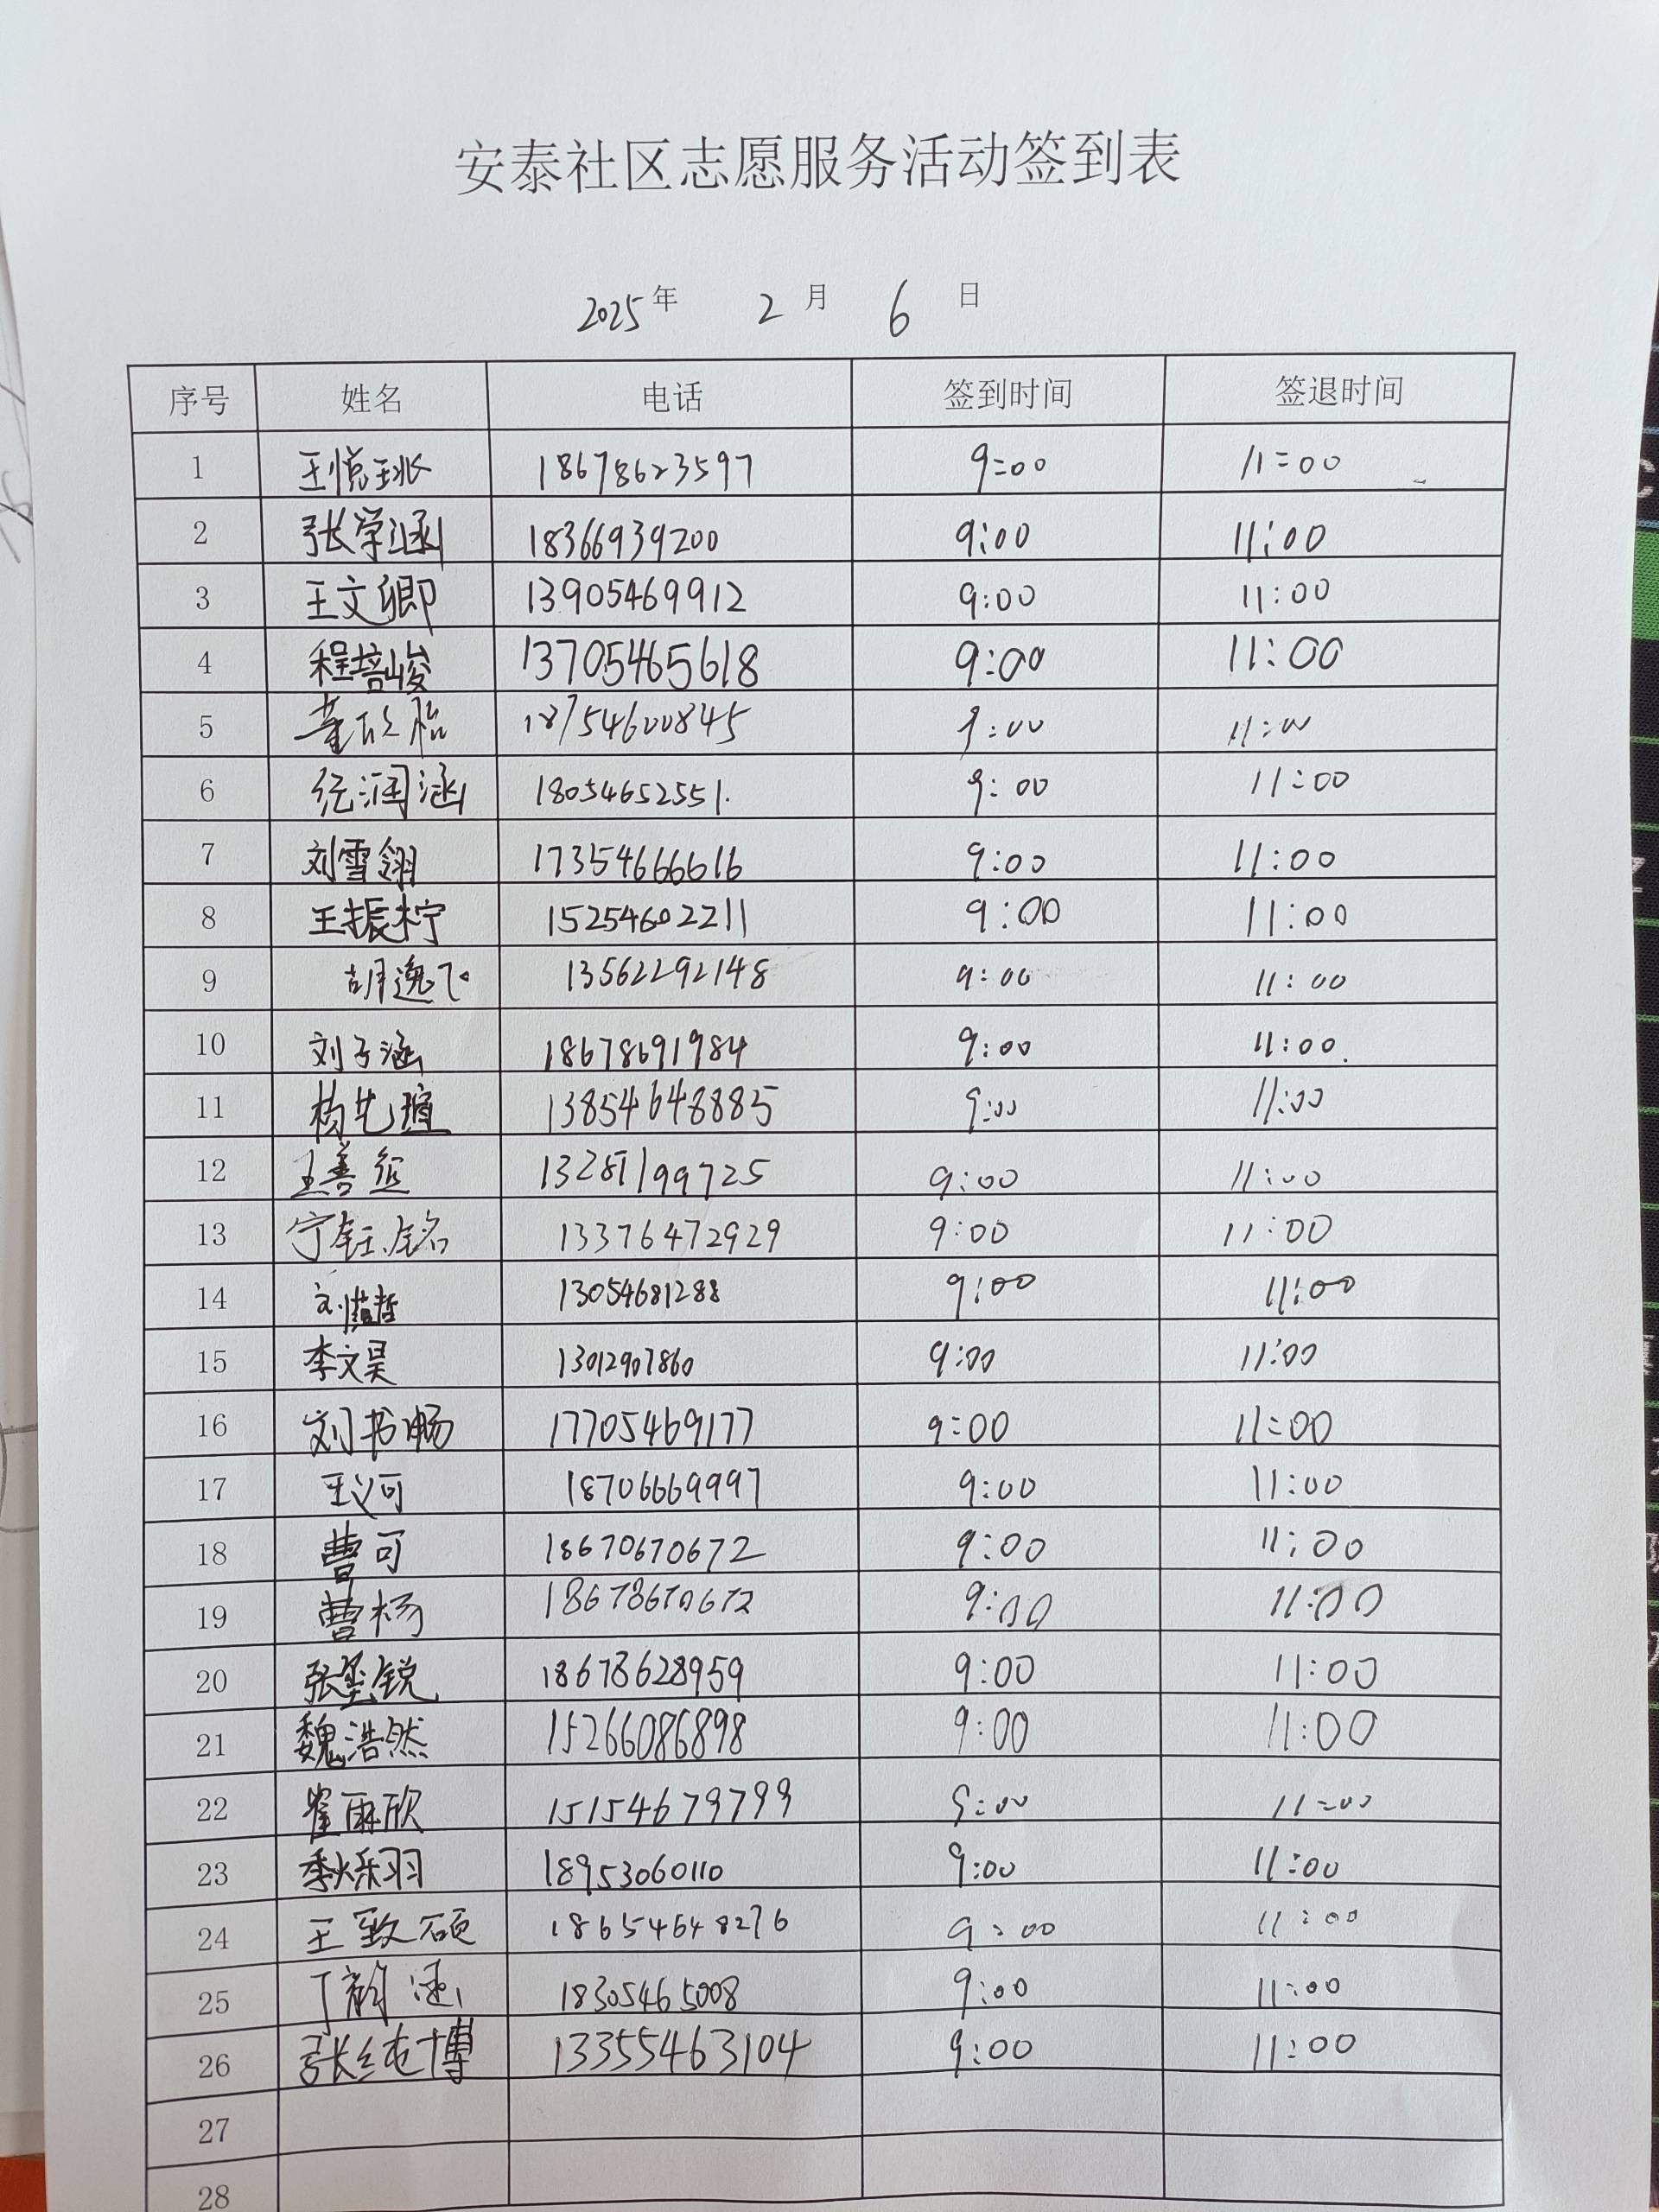 安泰社区志愿服务活动签到表
2025年 2月 6日
序号 姓名 电话 签到时间 签退时间
1 王悦珧 18678623597 9:00 11:00
2 张学涵 18366939200 9:00 11:00
3 王文卿 13905469912 9:00 11:00
4 程培峻 13705465618 9:00 11:00
5 董欣怡 18754600845 9:00 11:00
6 纪润涵 18054652551. 9:00 11:00
7 刘雪翎 17354666616 9:00 11:00
8 王振柠 15254602211 9:00 11:00
9 胡逸飞 13562292148 9:00 11:00
10 刘子涵 18678691984 9:00 11:00.
11 杨艺瑄 13854648885 9:00 11:00
12 王善 13281199725 9:00 11:00
13 宁钰铭 13376472929 9:00 11:00
14 刘哲 13054681288 9:00 11:00
15 李文昊 13012907860 9:00 11:00
16 刘书畅 17705469177 9:00 11:00
17 王义可 18706669997 9:00 11:00
18 曹可 18670670672 9:00 11:00
19 曹杨 18678670672 9:00 11:00
20 张玺锐 18678628959 9:00 11:00
21 魏浩然 15266086898 9:00 11:00
22 崔雨欣 15154679799 9:00 11:00
23 季烁羽 18953060110 9:00 11:00
24 王致硕 18654648276 9:00 11:00
25 丁韵涵 18305465008 9:00 11:00
26 张纯博 13355463104 9:00 11:00
27
28